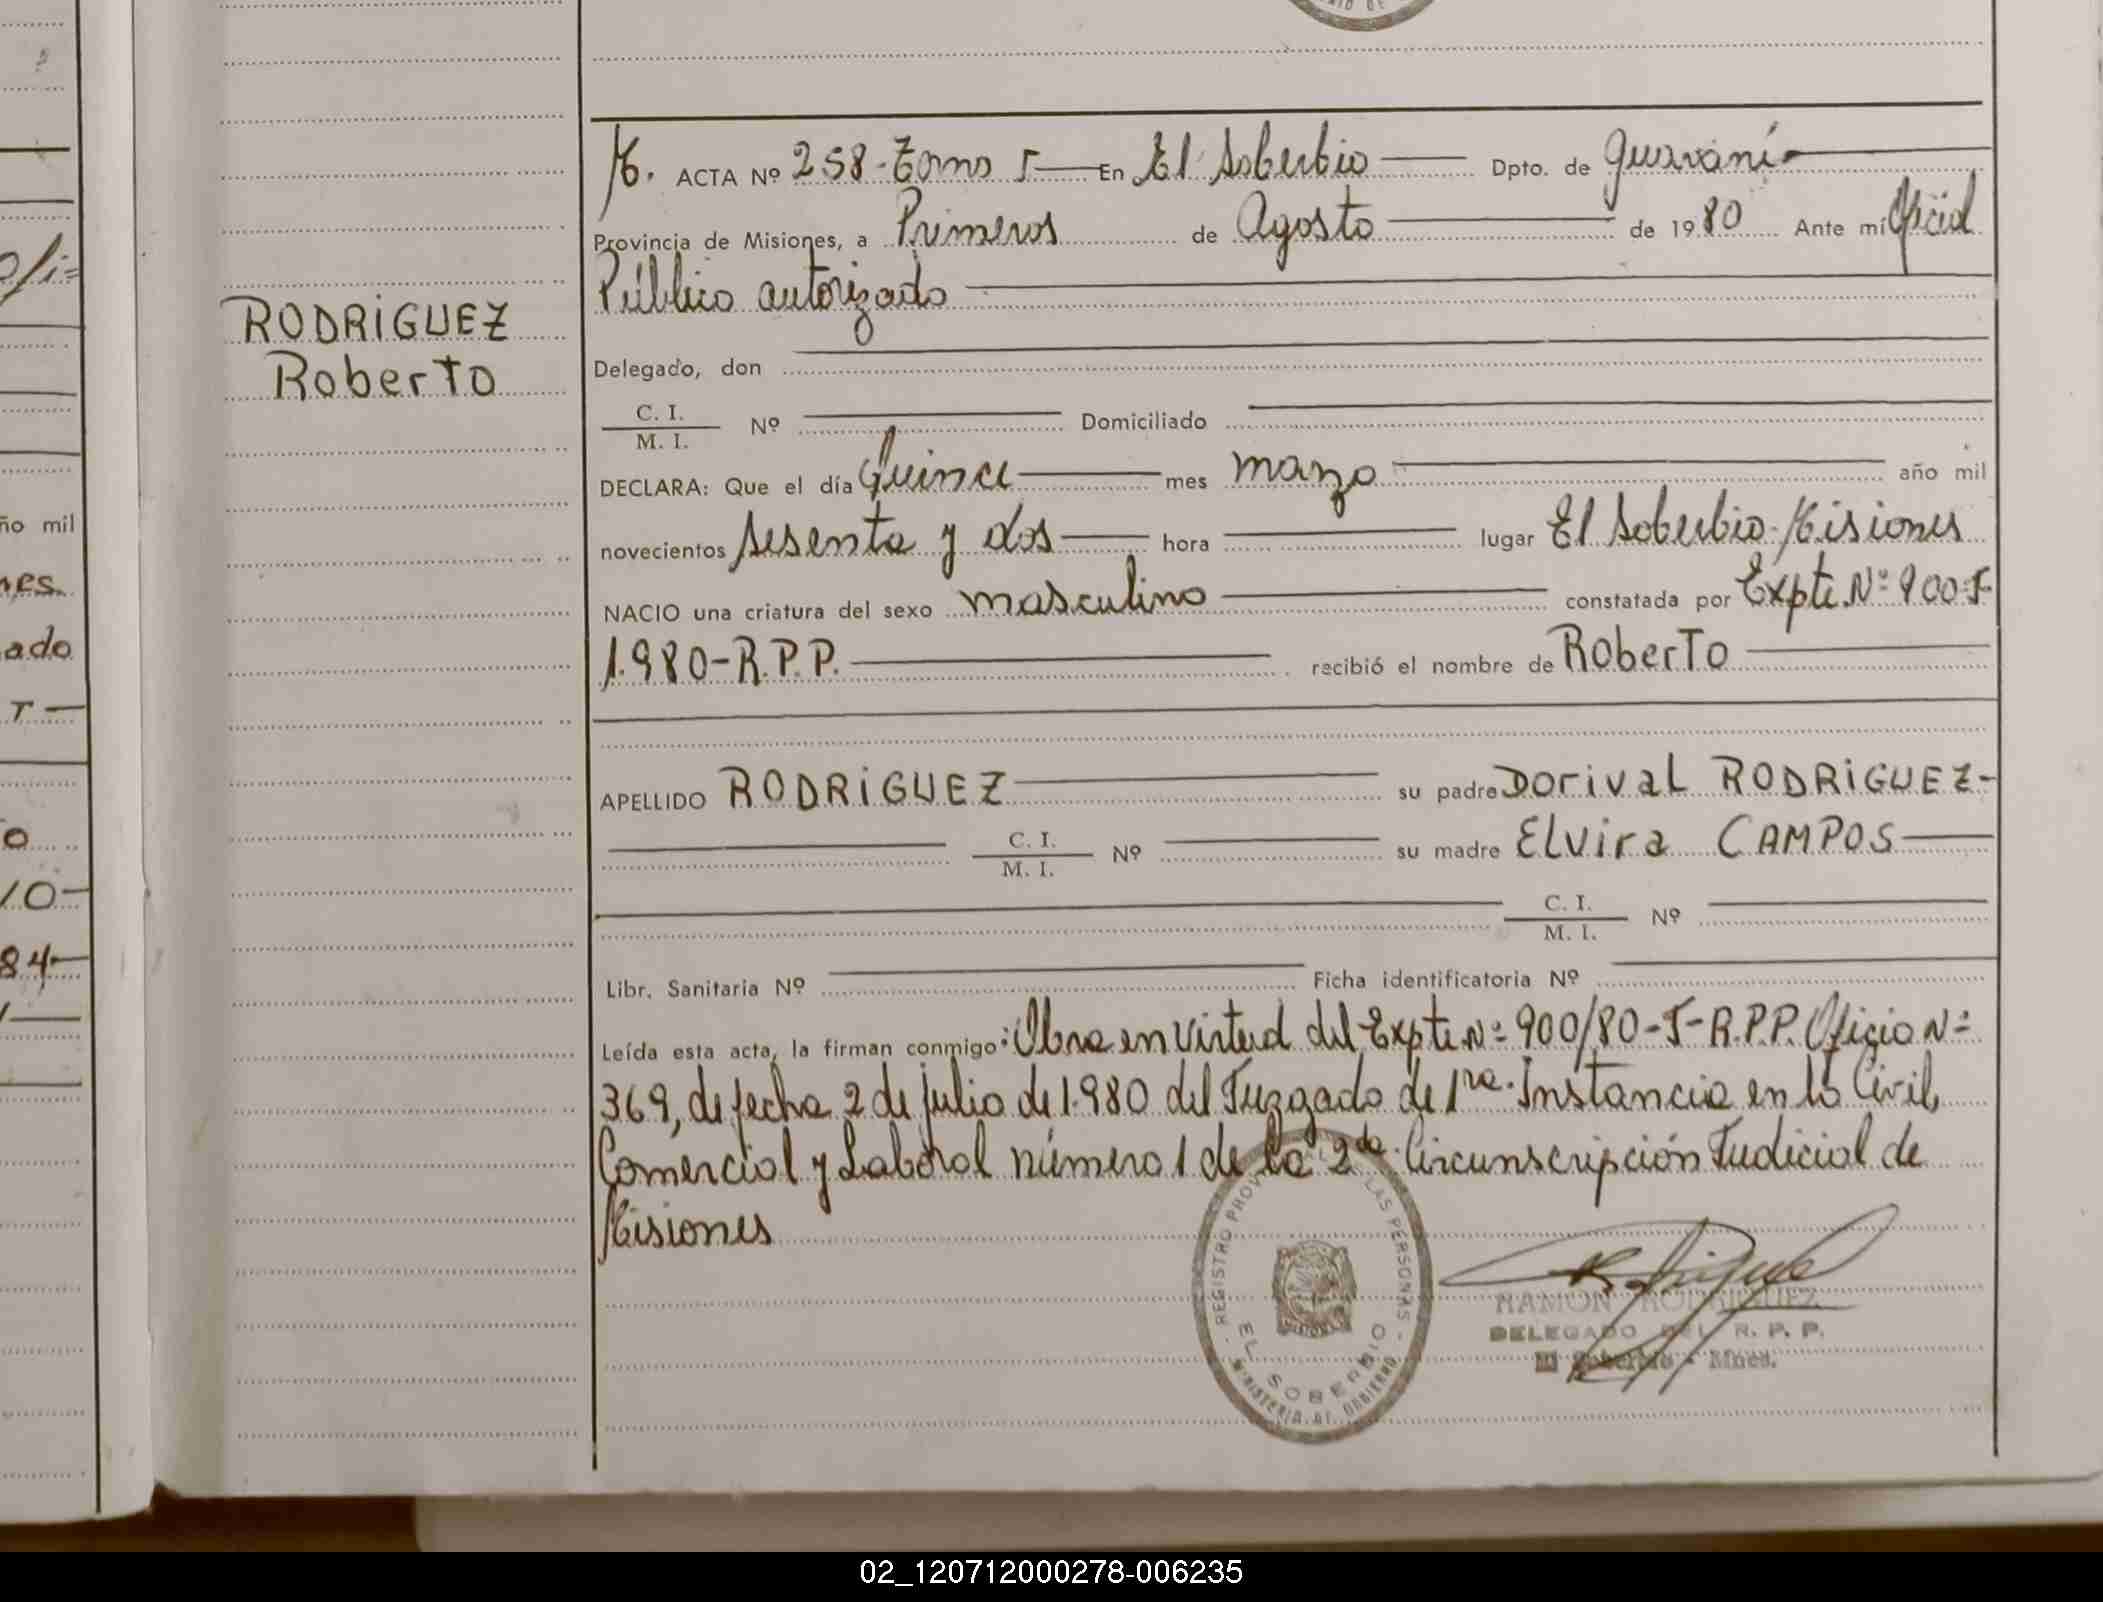 RODRIGUEZ
Roberto
M. ACTA Nº 258-Tomo 5 En El Soberbio Dpto. de Guaraní
Provincia de Misiones, a Primeros de Agosto de 1980 Ante mí Oficial
Público autorizado
Delegado, don
C. I.
M. I. Nº Domiciliado
DECLARA: Que el día Quince mes marzo año mil
novecientos sesenta y dos hora lugar El Soberbio-Misiones
NACIO una criatura del sexo masculino constatada por Expte. Nº 900-J-
1.980-R.P.P. recibió el nombre de Roberto
APELLIDO RODRIGUEZ su padre Dorival RODRIGUEZ-
C. I.
M. I. Nº su madre Elvira CAMPOS
C. I.
M. I. Nº
Libr. Sanitaria Nº Ficha identificatoria Nº
Leída esta acta, la firman conmigo: Obra en virtud del Expte. Nº 900/80-J-R.P.P. Oficio Nº
369, de fecha 2 de julio de 1.980 del Juzgado de 1ra. Instancia en lo Civil,
Comercial y Laboral número 1 de la 2da. Circunscripción Judicial de
Misiones
REGISTRO PROV LAS PERSONAS
EL SOBERBIO
MINISTERIO DE GOBIERNO
RAMON RODRIGUEZ
DELEGADO DEL R. P. P.
El Soberbio - Mnes.
ño mil
nes.
ado
10-
84-
02_120712000278-006235